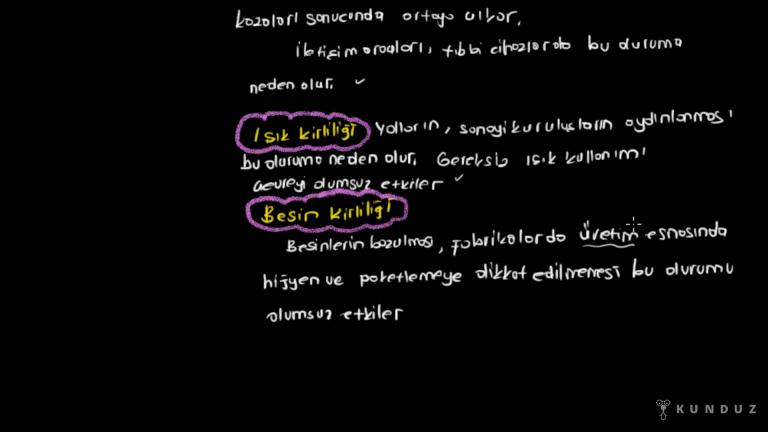 kazaları sonucunda ortaya çıkar.
iletişim araçları, tıbbi cihazlarda bu duruma
neden olur.
Işık kirliliği Yolların, sanayi kuruluşların aydınlanması
bu duruma neden olur. Gereksiz ışık kullanımı
çevreyi olumsuz etkiler
Besin kirliliği
Besinlerin bozulması, fabrikalarda üretim esnasında
hijyen ve paketlemeye dikkat edilmemesi bu durumu
olumsuz etkiler
KUNDUZ